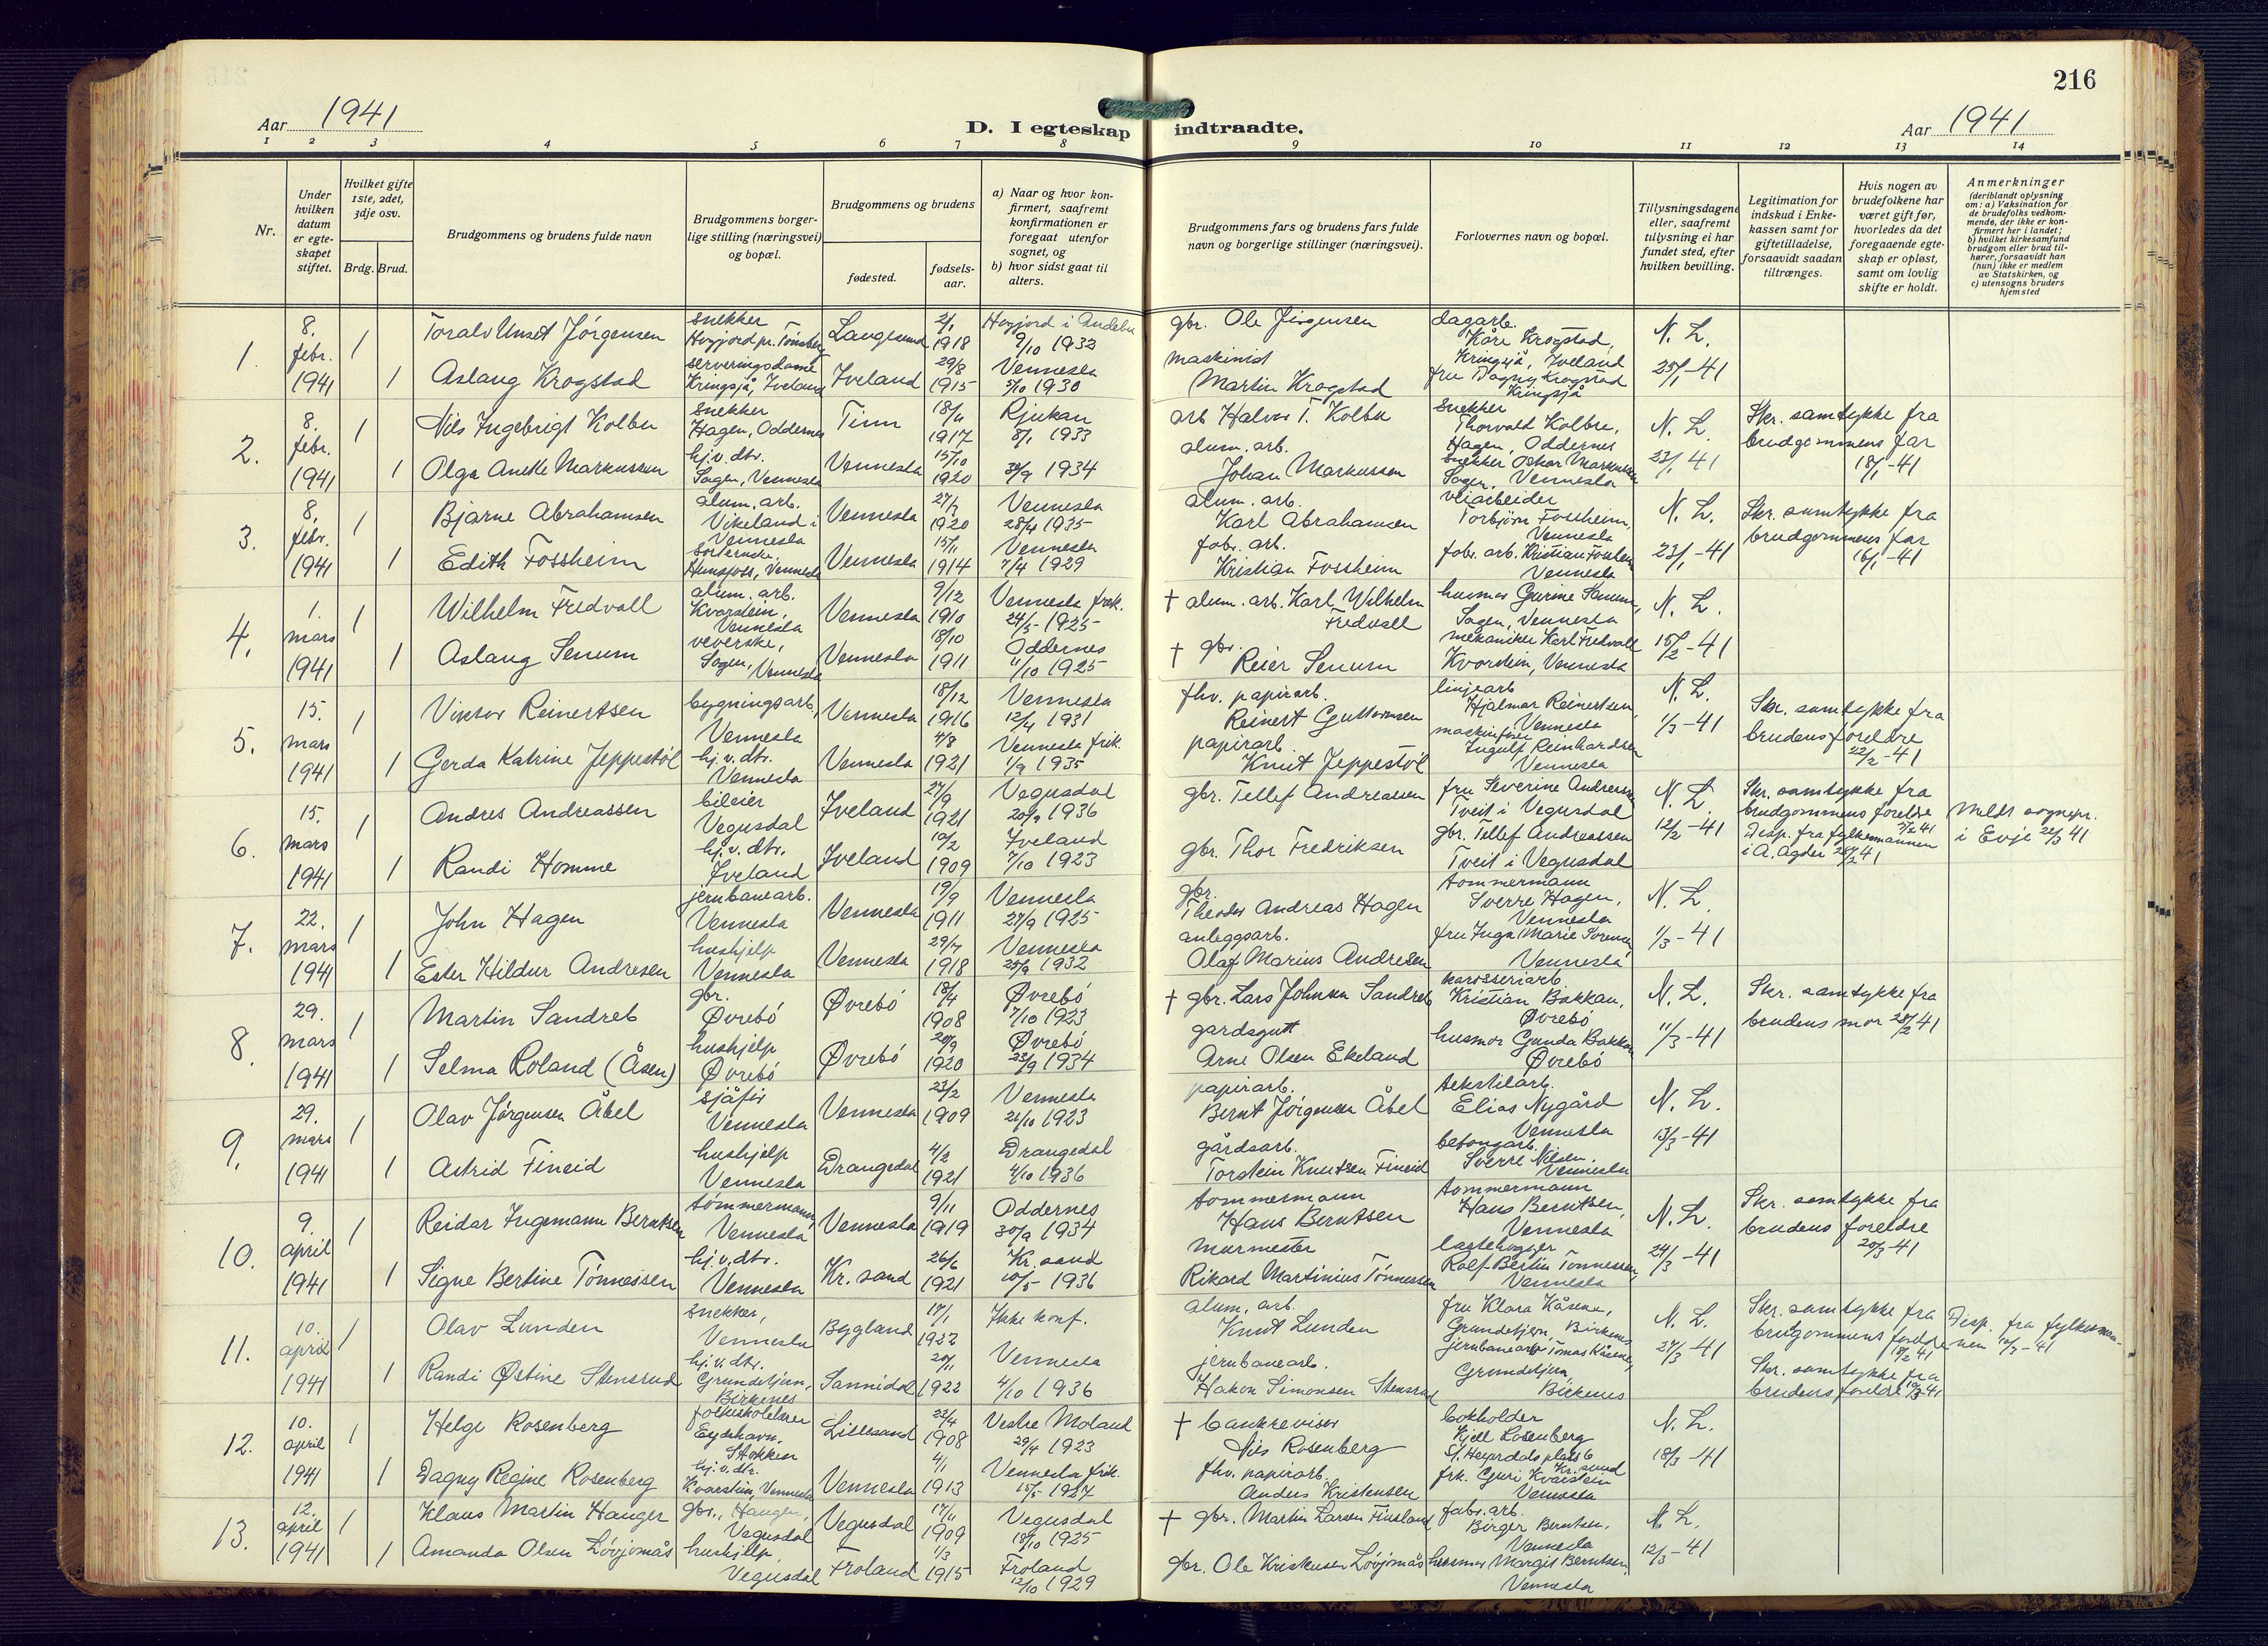 216
Aar 1941
D. I egteskap indtraadte.
Aar 1941
1 2 3 4 5 6 7 8 9 10 11 12 13 14
Nr.
Under hvilken datum er egte-skapet stiftet.
Hvilket gifte 1ste, 2det, 3dje osv.
Brdg. Brud.
Brudgommens og brudens fulde navn
Brudgommens borger-lige stilling (næringsvei) og bopæl.
Brudgommens og brudens
fødested.
fødsels-aar.
a) Naar og hvor kon-firmert, saafremt konfirmationen er foregaat utenfor sognet, og
b) hvor sidst gaat til alters.
Brudgommens fars og brudens fars fulde navn og borgerlige stillinger (næringsvei).
Forlovernes navn og bopæl.
Tillysningsdagene eller, saafremt tillysning ei har fundet sted, efter hvilken bevilling.
Legitimation for indskud i Enke-kassen samt for giftetilladelse, forsaavidt saadan tiltrænges.
Hvis nogen av brudefolkene har været gift før, hvorledes da det foregaaende egte-skap er opløst, samt om lovlig skifte er holdt.
Anmerkninger
(deriblandt oplysning om: a) Vaksination for de brudefolks vedkom-mende, der ikke er kon-firmert her i landet; b) hvilket kirkesamfund brudgom eller brud til-hører, forsaavidt han (hun) ikke er medlem av Statskirken, og c) utensogns bruders hjemsted
1. 8. febr. 1941 1 Toralv Unset Jørgensen snekker Hvgjord pr. Tønsberg Langesund 2/1 1918 Hvgjord i Andebu 9/10 1932 gbr. Ole Jørgensen dagarb. Kåre Krogstad, Kringsjå, Iveland N. L.
1 Aslaug Krogstad serveringsdame Kringsjå, Iveland Iveland 29/8 1915 Vennesla 5/10 1930 maskinist Martin Krogstad fru Dagny Krogstad Kringsjå 25/1-41
2. 8. febr. 1941 1 Nils Ingebrigt Kolbu snekker Hagen, Oddernes Tinn 18/11 1917 Rjukan 8/1 1933 arb Halvor T. Kolbu snekker Thorvald Kolbu, Hagen, Oddernes N. L. Skr. samtykke fra brudgommens far 18/1-41
1 Olga Anette Markussen hj.v. dtr. Sagen, Vennesla Vennesla 15/10 1920 30/9 1934 alum. arb. Johan Markussen snekker Oskar Markussen Sagen, Vennesla 23/1 41
3. 8. febr. 1941 1 Bjarne Abrahamsen alum. arb. Vikeland i Vennesla Vennesla 27/7 1920 Vennesla 28/4 1935 alum. arb. Karl Abrahamsen veiarbeider Torbjørn Fossheim, Vennesla N. L. Skr. samtykke fra brudgommens far 16/1-41
1 Edith Fossheim Hunsfoss, Vennesla Vennesla 15/11 1914 Vennesla 7/4 1929 fabr. arb. Kristian Fossheim fabr. arb. Kristian Fossheim Vennesla 23/1-41
4. 1. mars 1941 1 Wilhelm Fredvall alum. arb. Kvarstein, Vennesla Vennesla 9/12 1910 Vennesla frik. 24/5 1925 † alum. arb. Karl Wilhelm Fredvall husmor Gurine Senum, Sagen, Vennesla N. L.
1 Aslaug Senum veverske, Sagen, Vennesla Vennesla 18/10 1911 Oddernes 11/10 1925 † gbr. Reier Senum mekaniker Karl Fredvall Kvarstein, Vennesla 15/2-41
5. 15. mars 1941 1 Viktor Reinertsen bygningsarb, Vennesla Vennesla 18/12 1916 Vennesla 12/4 1931 fhv. papirarb. Reinert Guttormsen linjearb Hjalmar Reinertsen, Vennesla N. L. Skr. samtykke fra brudens foreldre 22/2-41
1 Gerda Katrine Jeppestøl hj.v. dtr. Vennesla Vennesla 4/8 1921 Vennesla frik. 1/9 1935 papirarb. Knut Jeppestøl maskinfører Ingulf Reinhardsen Vennesla 1/3-41
6. 15. mars 1941 1 Andres Andreassen bileier Vegusdal Iveland 27/9 1921 Vegusdal 20/9 1936 gbr. Tellef Andreassen fru Severine Andreassen Tveit i Vegusdal N. L. Skr. samtykke fra brudgommens foreldre Disp. fra fylkesmannen i A. Agder 25/2 41 Meldt sognepr. i Evje 22/3 41
1 Randi Homme hj.v. dtr. Iveland Iveland 10/2 1909 Iveland 7/10 1923 gbr. Thor Fredriksen gbr. Tellef Andreassen Tveit i Vegusdal 12/2-41
7. 22. mars 1941 1 John Hagen jernbanearb. Vennesla Vennesla 19/9 1911 Vennesla 27/9 1925 gbr. Theodor Andreas Hagen tommermann Sverre Hagen, Vennesla N. L.
1 Ester Hildur Andresen hushjelp Vennesla Vennesla 29/7 1918 Vennesla 25/9 1932 anleggsarb. Olaf Marius Andresen fru Inga Marie Sorensen Vennesla 1/3-41
8. 29. mars 1941 1 Martin Sandreb gbr. Øvrebö Øvrebö 18/4 1908 Øvrebö 7/10 1923 † gbr. Lars Johnsen Sandreb karosseriarb. Kristian Bakkan, Øvrebö N. L. Skr. samtykke fra brudens mor 28/2 41
1 Selma Roland (Åsen) hushjelp Øvrebö Øvrebö 20/9 1920 Øvrebö 23/9 1934 gardsgutt Arne Olsen Ekeland husmor Gunda Bakkan Øvrebö 11/3-41
9. 29. mars 1941 1 Olav Jørgensen Åbel sjåfør Vennesla Vennesla 23/2 1909 Vennesla 21/10 1923 papirarb. Bernt Jørgensen Åbel tekstilarb. Elias Nygård Vennesla N. L.
1 Astrid Fineid hushjelp Vennesla Drangedal 4/2 1921 Drangedal 4/10 1936 gårdsarb. Torstein Knutsen Fineid betongarb. Sverre Nilsen, Vennesla 13/3-41
10. 9. april 1941 1 Reidar Ingemann Berntsen tømmermann, Vennesla Vennesla 9/11 1919 Oddernes 30/9 1934 tommermann Hans Berntsen tommermann Hans Berntsen, Vennesla N. L. Skr. samtykke fra brudens foreldre 20/3-41
1 Signe Bertine Tønnessen hj.v. dtr. Vennesla Kr. sand 26/6 1921 Kr. sand 10/5 1936 murmester Rikard Martinius Tønnessen Rolf Bertin Tonnessen, Vennesla 24/3-41
11. 10. april 1941 1 Olav Lunden snekker, Vennesla Bygland 17/1 1922 Ikke konf. alum. arb. Knut Lunden fru Klara Kåsene, Grundetjern, Birkenes N. L. Skr. samtykke fra brudgommens foreldre 18/2 41 Disp. fra fylkesman-nen 10/3-41
1 Randi Østine Stensrud hj.v. dtr. Grundetjern, Birkenes Sannidal 20/11 1922 Vennesla 4/10 1936 jernbanearb. Hakon Simonsen Stensrud jernbanearb Tomas Kåsene, Grundetjern Birkenes 27/3-41 Skr. samtykke fra brudens foreldre 10/3-41
12. 10. april 1941 1 Helge Rosenberg folkeskolelærer Eydehavn, Stokken Lillesand 22/4 1908 Vestre Moland 29/4 1923 † bankrevisor Nils Rosenberg bokholder Kjell Rosenberg St. Heyerdals plass 6 Kr. sand N. L.
1 Dagny Regine Rosenberg hj.v. dtr. Kvarstein, Vennesla Vennesla 4/1 1913 Vennesla frik. 15/5 1927 fhv. papirarb. Anders Kristensen frk. Guri Kvarstein Vennesla 18/3-41
13. 12. april 1941 1 Klaus Martin Hauger gbr., Haugen, Vegusdal Vegusdal 17/11 1909 Vegusdal 18/10 1925 † gbr. Martin Larsen Finsland fabr. arb. Birger Berntsen, Vennesla N. L.
1 Amanda Olsen Løvjomås hushjelp, Vegusdal Froland 1/3 1915 Froland 12/10 1929 gbr. Ole Kristensen Løvjomås husmor Margit Berntsen, Vennesla 12/3-41